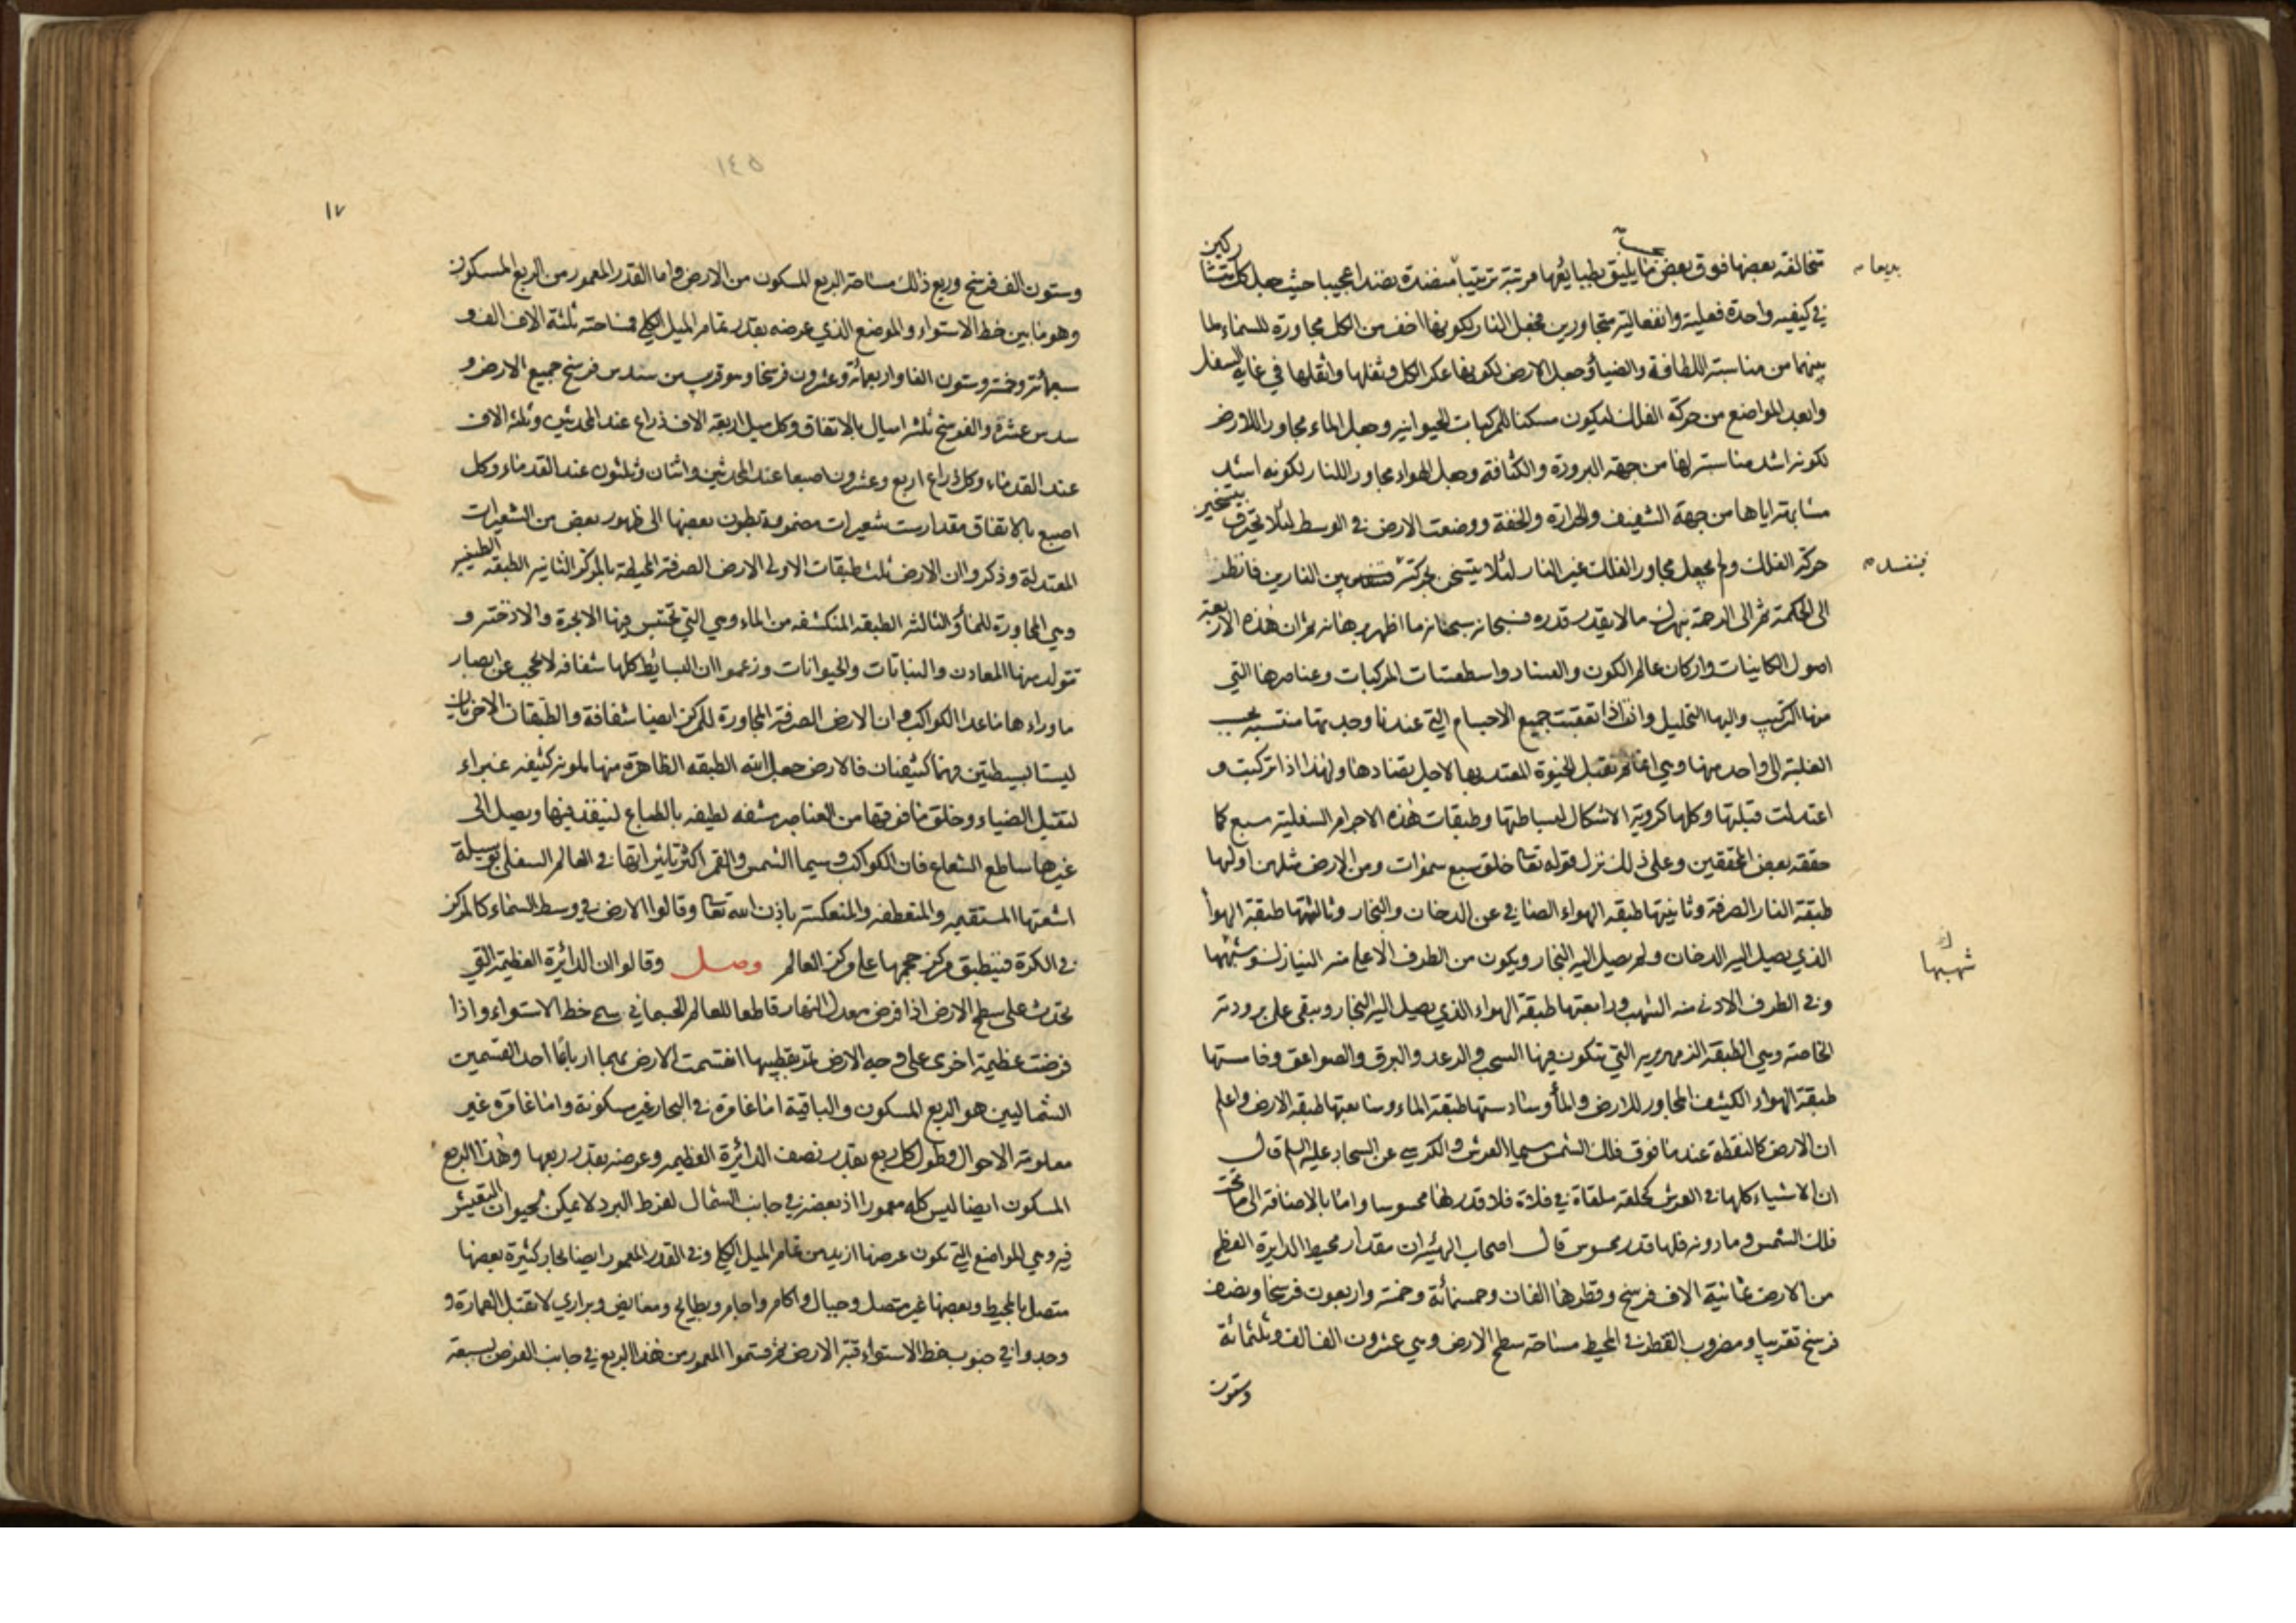 تتخالفة بعضها فوق بعض ما يليق بطبايعها مرتبة ترتيبا منضدة نضدا عجيبا حيث جعل كل متشاركين
بديعا
في كيفية واحدة فعلية وانفعالية متجاورين فجعل النار لكونها اخف من الكل مجاورة للسماء لما
بينهما من مناسبة اللطافة والضياء وجعل الارض لكونها عكر الكل وثفلها واثقلها في غاية السفل
وابعد المواضع من حركة الفلك ليكون مسكنا للمركبات الحيوانية وجعل الماء مجاورا للارض
لكونه اشد مناسبة لها من جهة البرودة والكثافة وجعل الهواء مجاورا للنار لكونه اشد
مشابهة اياها من جهة الشفيف والحرارة والخفة ووضعت الارض في الوسط لئلا تحترق بتسخير
حركة الفلك ولم يجعل مجاور الفلك غير النار لئلا يتسخن بحركته بين النارين فانظر
الى الحكمة ثم الى الرحمة بهن ما لا يقدر قدره فسبحانه سبحانه ما اظهر برهانه ثم ان هذه الاربعة
اصول الكاينات واركان عالم الكون والفساد واسطقسات المركبات وعناصرها التي
منها التركيب واليها التحليل واذا تعقبت جميع الاجسام التي عندنا وجدتها منتسبة بحسب
الغلبة الى واحد منها وهي انما لم تقبل الحيوة لتضادها ولهذا اذا تركبت و
اعتدلت قبلتها وكلها كروية الاشكال لبساطتها وطبقات هذه الاجرام السفلية سبع كما
حققه بعض المحققين وعلى ذلك نزل قوله تعا خلق سبع سموات ومن الارض مثلهن اولها
طبقة النار الصرفة وثانيتها طبقة الهواء الصافي عن الدخان والبخار وثالثتها طبقة الهوأ
الذي يصل اليه الدخان ولم يصل اليه البخار ويكون من الطرف الاعلى منه النيازك وشبهها
شهبها
وفي الطرف الادنى منه الشهب ورابعتها طبقة الهواء الذي يصل اليه البخار ويبقى على برودته
الخاصة وهي الطبقة الزمهريرية التي تتكون فيها السحب والرعد والبرق والصواعق وخامستها
طبقة الهواء الكثيف المجاور للارض والمأ وسادستها طبقة الماء وسابعتها طبقة الارض واعلم
ان الارض كالنقطة عند ما فوق فلك الشمس سيما العرش والكرسي عن السجاد عليه السلم قال
ان الاشياء كلها في العرش كحلقة ملقاة في فلاة فلا قدر لها محسوسا واما بالاضافة الى ما تحت
فلك الشمس وما دونه فلها قدر محسوس قال اصحاب الهيئة ان مقدار محيط الدايرة العظمى
من الارض ثمانية الاف فرسخ وقطرها الفان وخمسمائة وخمسة واربعون فرسخا ونصف
فرسخ تقريبا ومضروب القطر في المحيط مساحة سطح الارض وهي عشرون الف الف وثلثمائة
وستون
١٧
وستون الف فرسخ وربع ذلك مساحة الربع المسكون من الارض واما القدر المعمور من الربع المسكون
وهو ما بين خط الاستواء والموضع الذي عرضه بقدر تمام الميل الكلي فمساحته ثلثة الاف الف و
سبعمائة وخمسة وستون الفا واربعمائة وعشرون فرسخا وهو قريب من سدس فرسخ جميع الارض و
سدس عشره والفرسخ ثلثة اميال بالاتفاق وكل ميل اربعة الاف ذراع عند المحدثين وثلثة الاف
عند القدماء وكل ذراع اربع وعشرون اصبعا عند المحدثين واثنان وثلثون عند القدماء وكل
اصبع بالاتفاق مقدار ست شعيرات مضمومة بطون بعضها الى ظهور بعض من الشعيرات
المعتدلة وذكروا ان الارض ثلث طبقات الاولى الارض الصرفة المحيطة بالمركز الثانية الطبقة الطينية
وهي المجاورة للمأ والثالثة الطبقة المنكشفة من الماء وهي التي تحتبس فيها الابخرة والادخنة و
تتولد منها المعادن والنباتات والحيوانات وزعموا ان البسائط كلها شفافة لا تحجب عن ابصار
ما وراءها ما عدا الكواكب وان الارض الصرفة المجاورة للمركز ايضا شفافة والطبقتان الاخريان
ليستا بسيطتين فهما كثيفتان فالارض جعل الله الطبقة الظاهرة منها ملونة كثيفة غبراء
لتقبل الضياء وخلق ما فوقها من العناصر مشفة لطيفة بالطباع لينفذ فيها ويصل الى
غيرها ساطع الشعاع فان الكواكب وسيما الشمس والقمر اكثر تاثيراتها في العالم السفلي بوسيلة
اشعتها المستقيمة والمنعطفة والمنعكسة باذن الله تعا وقالوا الارض في وسط السماء كالمركز
في الكرة فينطبق مركز حجمها على مركز العالم وصل وقالوا ان الدائرة العظيمة التي
تحدث على سطح الارض اذا فرض معدل النهار قاطعا للعالم الجسماني سمي خط الاستواء واذا
فرضت عظيمة اخرى على وجه الارض تمر بقطبيها انقسمت الارض بهما ارباعا احد القسمين
الشماليين هو الربع المسكون والباقية اما غامرة في البحار غير مسكونة واما غامرة غير
معلومة الاحوال وطول كل ربع بقدر نصف الدائرة العظيمة وعرضه بقدر ربعها وهذا الربع
المسكون ايضا ليس كله معمورا اذ بعضه في جانب الشمال لفرط البرد لا يمكن لحيوان التعيش
فيه وهي المواضع التي تكون عرضها ازيد من تمام الميل الكلي وفي القدر المعمور ايضا بحار كثيرة بعضها
متصل بالمحيط وبعضها غير متصل وجبال واكام واجام وبطايح ومغايض وبراري لا تقبل العمارة و
وجدوا في جنوب خط الاستواء قبة الارض ثم قسموا المعمور من هذا الربع في جانب العرض بسبعة